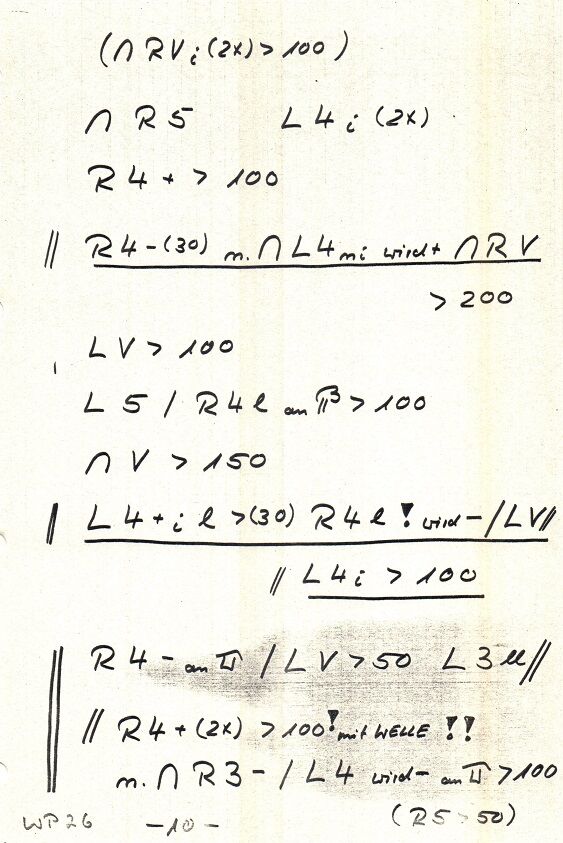 (∩ RV i (2x) > 100)
∩ R5 L4 i (2x)
R4 + > 100
|| R4 - (30) n. ∩ L4 ni wird + ∩ RV
> 200
LV > 100
L5 / R4 l an > 100
∩ V > 150
|| L4 + i l > (30) R4 l ! wird - / LV ||
|| L4 i > 100
R4 - an / LV > 50 L3 ||
|| R4 + (2x) > 100 ! mit WELLE !!
n. ∩ R3 - / L4 wird - an > 100
(R5 > 50)
WP26 - 10 -